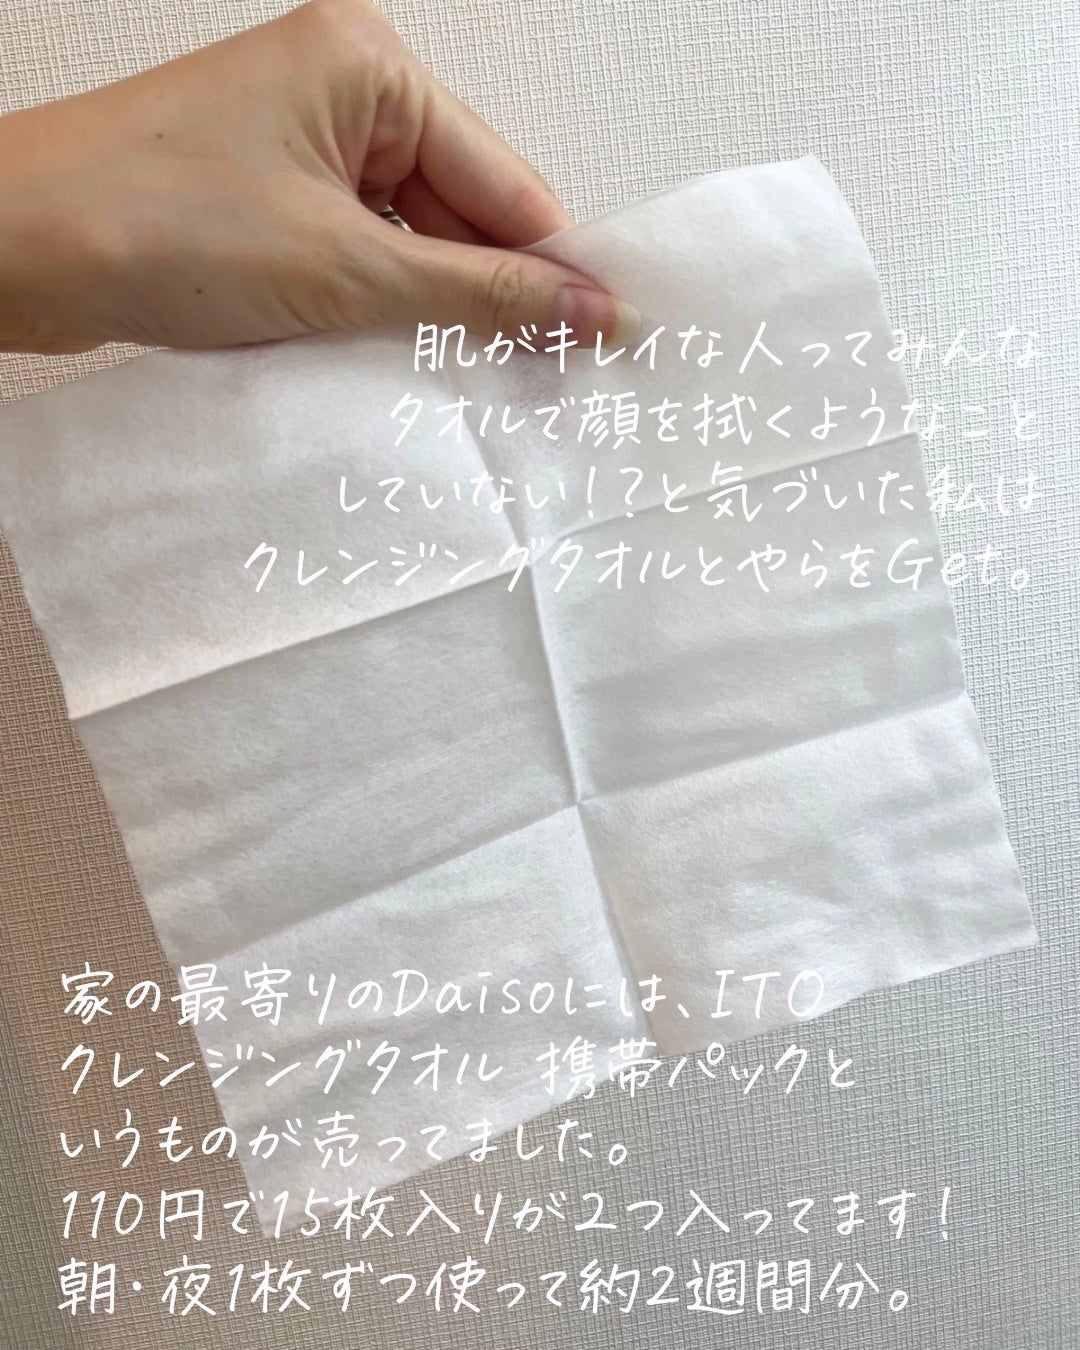 肌がキレイな人ってみんな
タオルで顔を拭くようなこと
していない！？と気づいた私は
クレンジングタオルとやらをGet。
家の最寄りのDaisoには、ITO
クレンジングタオル 携帯パックと
いうものが売ってました。
110円で15枚入りが2つ入ってます！
朝・夜1枚ずつ使って約2週間分。